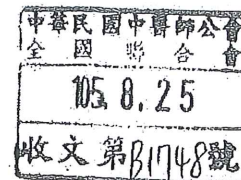 中華民國中醫師公會
全國聯合會
105.8.25
收文第B1748號